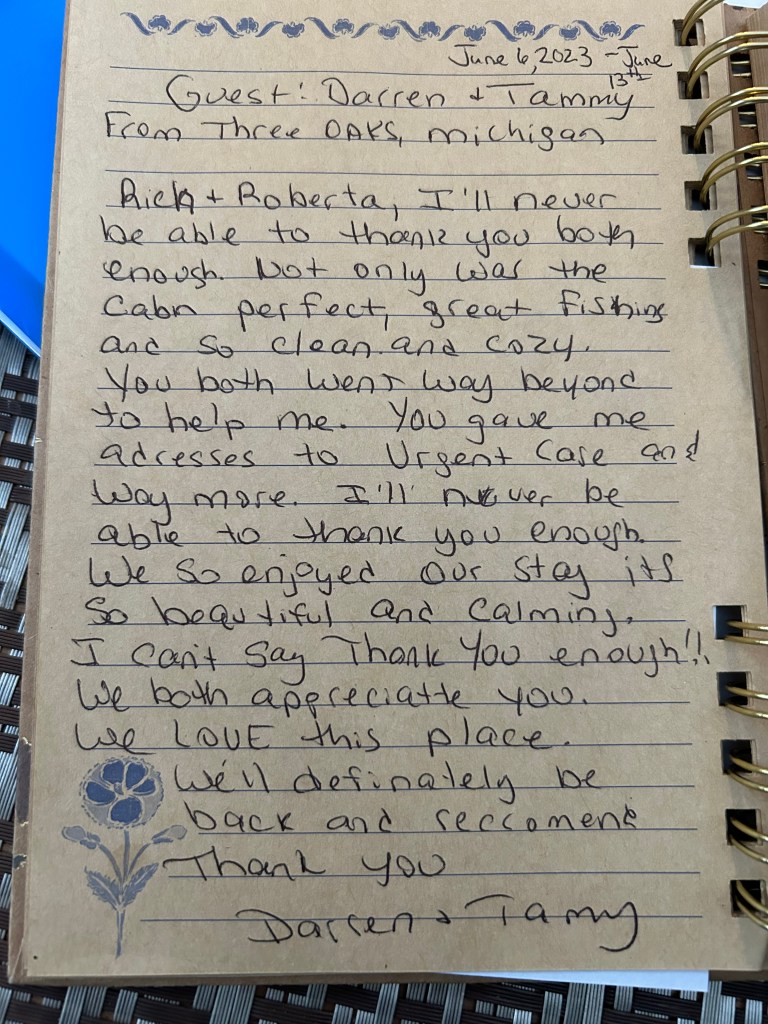 June 6, 2023 - June
13th
Guest: Darren + Tammy
From Three OAKS, michigan
Rich + Roberta, I'll never
be able to thank you both
enough. Not only was the
Cabn perfect, great fishing
and so clean and cozy.
You both went way beyond
to help me. You gave me
adresses to Urgent Care and
way more. I'll never be
able to thank you enough.
We so enjoyed our stay its
so beautiful and calming.
I can't say Thank You enough!!
We both appreciatte you.
We LOVE this place.
We'll definately be
back and reccomend
Thank you
Darren + Tamy